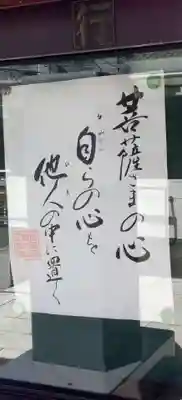 菩薩さまの心
自らの心を
他人の中に置く